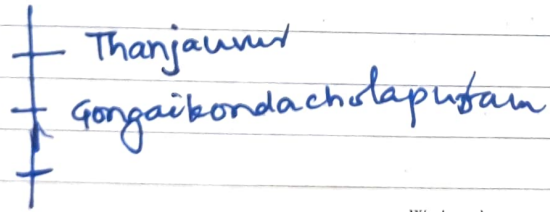 Thanjavur
Gongaikondacholapuram